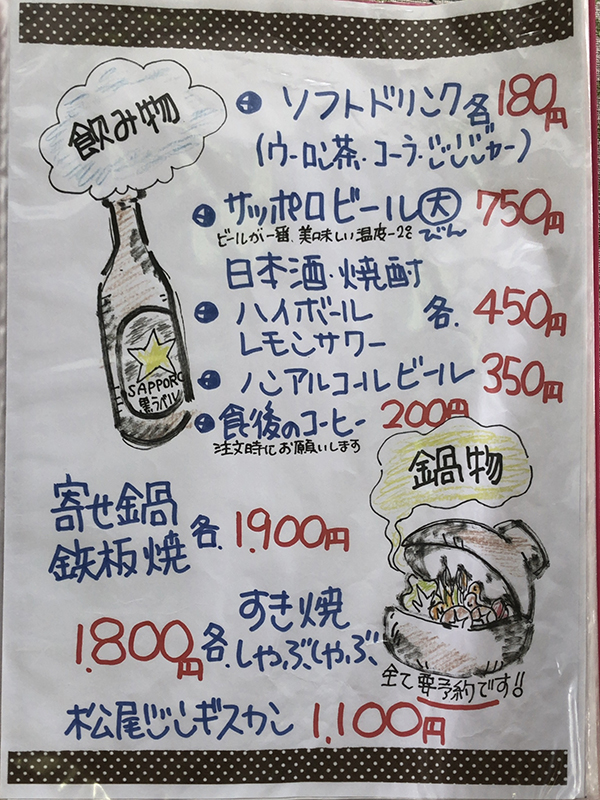 飲み物
ソフトドリンク各180円
(ウーロン茶・コーラ・じんじゃー)
サッポロビール大びん 750円
ビールが一番、美味しい温度-2℃
日本酒・焼酎
ハイボール 各.450円
レモンサワー
ノンアルコールビール 350円
食後のコーヒー 200円
注文時にお願いします
SAPPORO
黒ラベル
鍋物
寄せ鍋
鉄板焼 各.1.900円
すき焼
しゃぶしゃぶ 各.1.800円
全て要予約です!!
松尾じんギスカン 1.100円